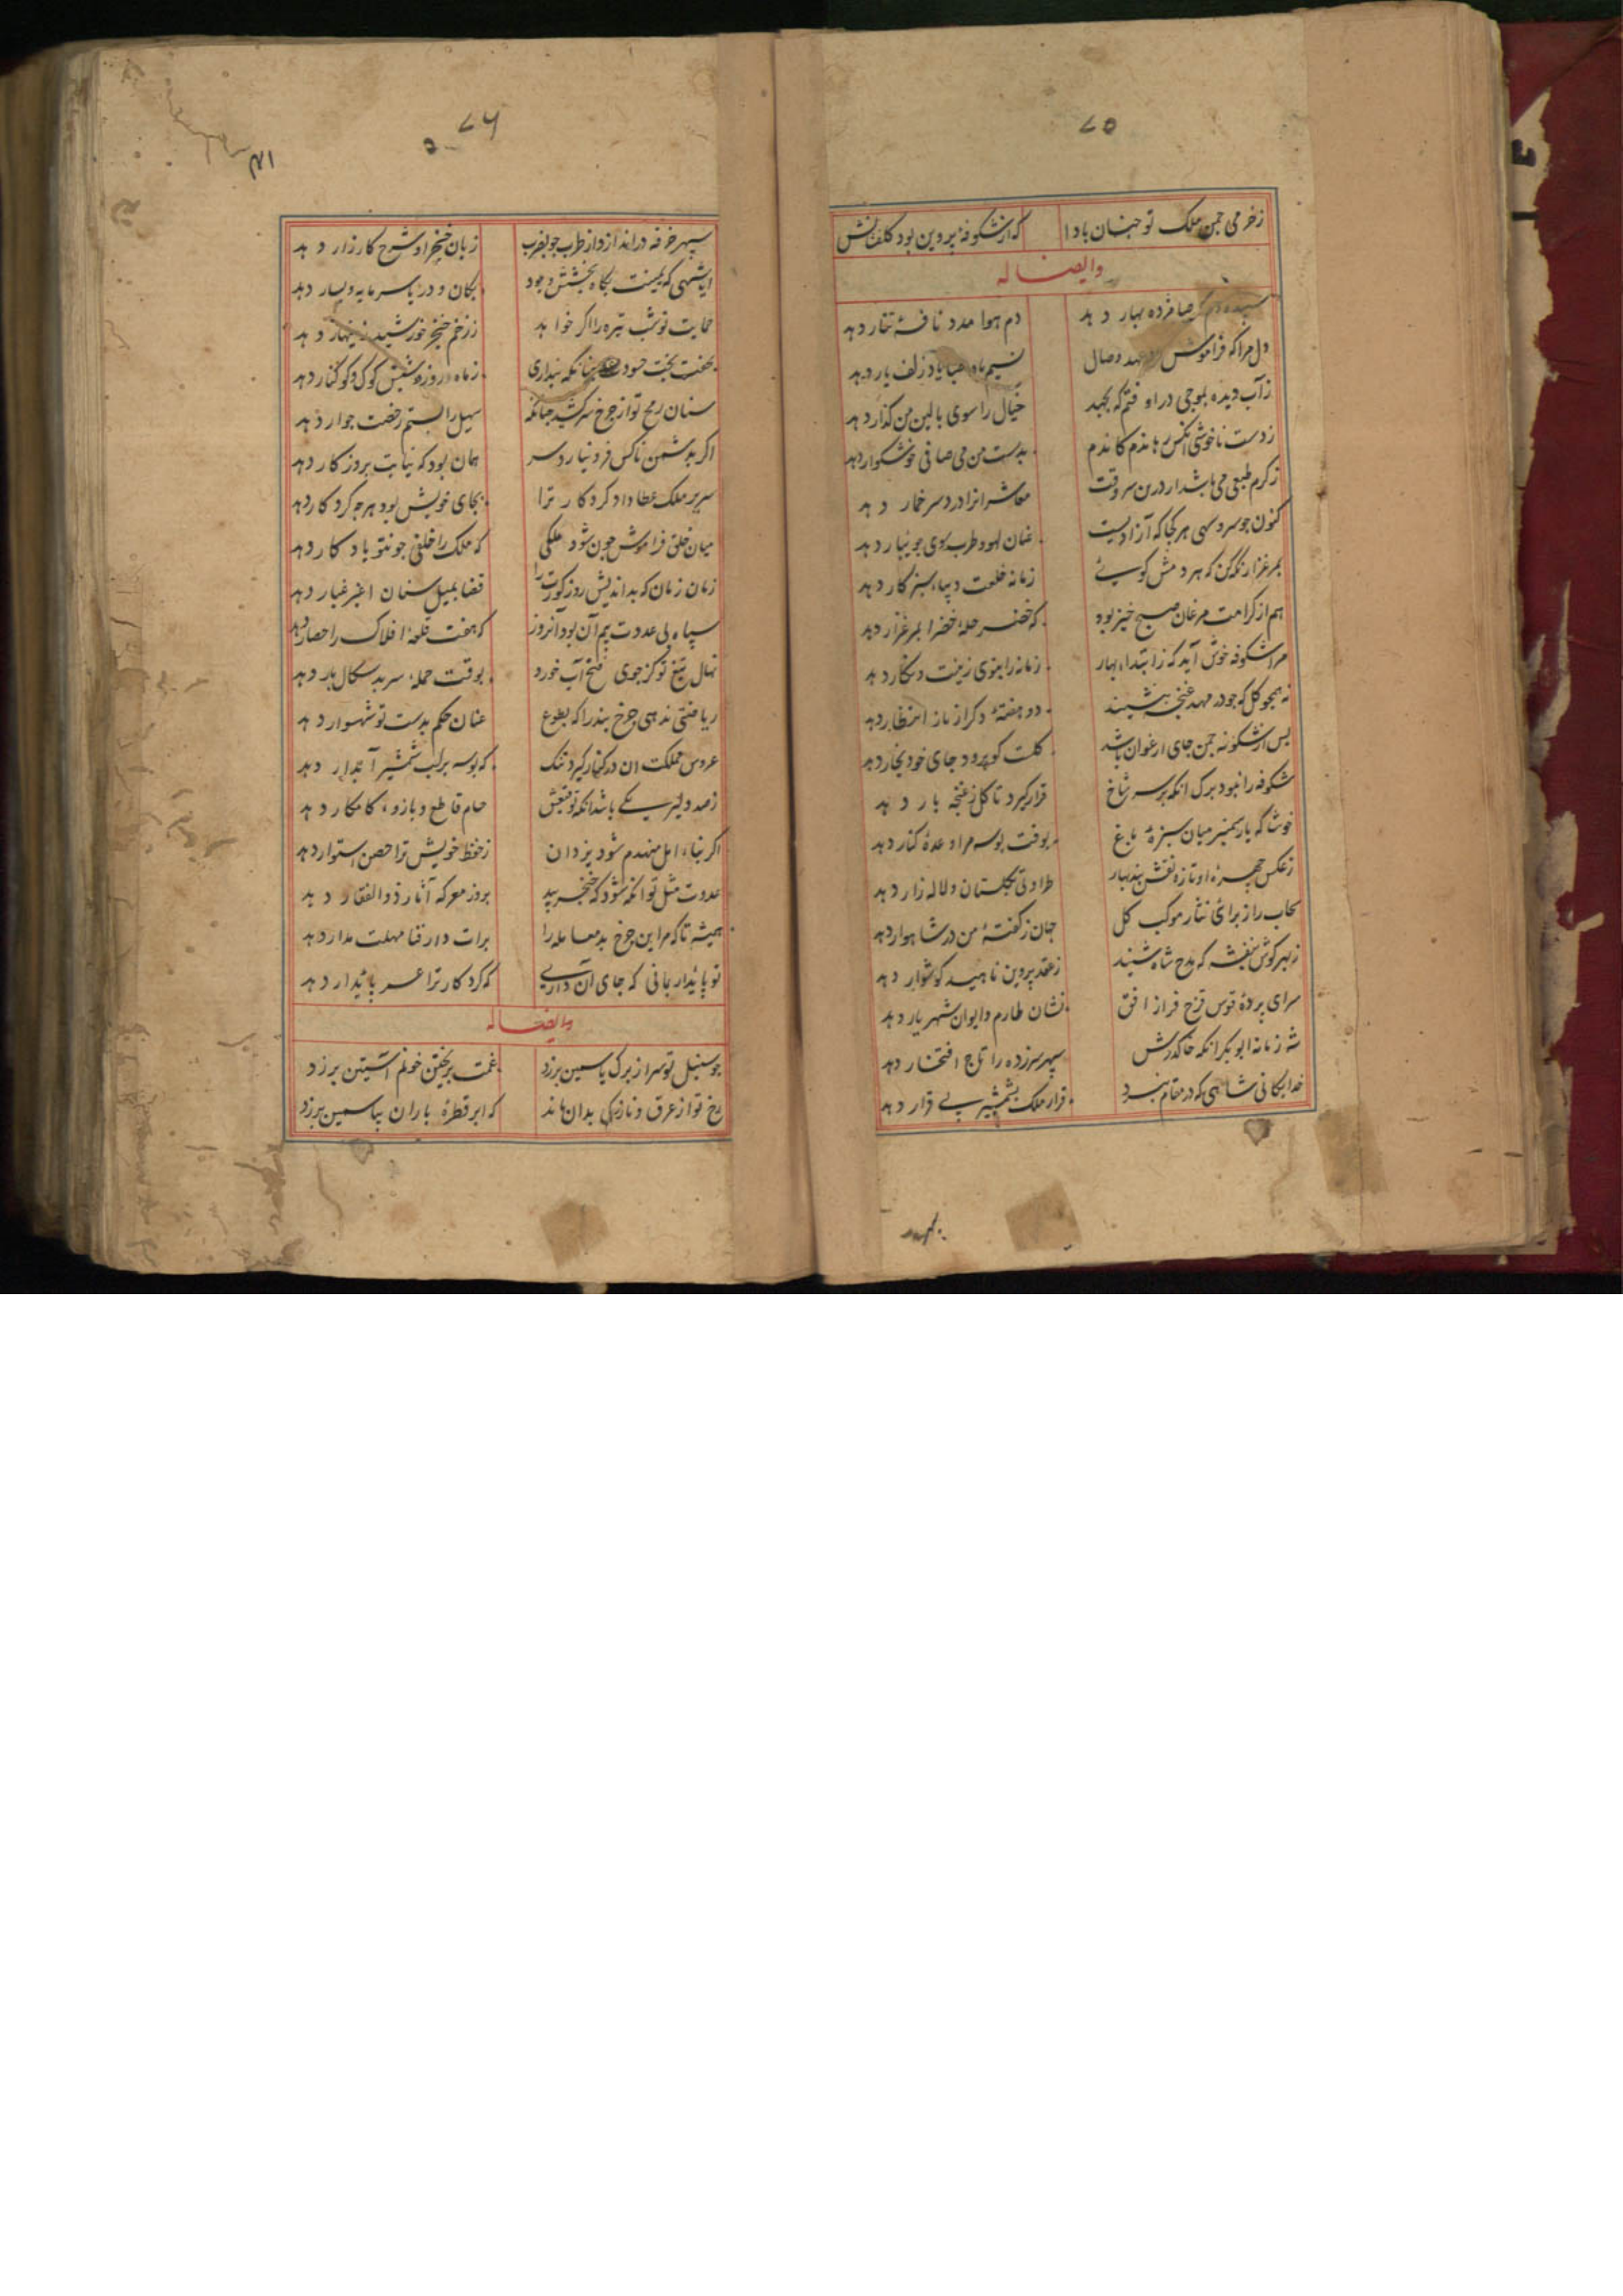 ۷۵
زخرمی چمن ملک تو چنان بادا که از شکوفه پروین بود کلفشانش
وایضا له
سپیده دم که صبا مژده بهار دهد دم هوا مدد نافهٔ تتار دهد
دل مرا که فراموش عهد وصال نسیم باد صبا یاد زلف یار دهد
زآب دیده بموجی دراوفتم که بجهد خیال را سوی بالین من گذار دهد
زدست ناخوشی بدست من می صافی خوشگوار دهد
زکرم طبعی می باشد ار درین سر وقت معاشرانرا دردسر خمار دهد
کنون چو سرو سهی هر کجا که آزادیست عنان لهو و طرب سوی جویبار دهد
بمرغزار نگه کن که هر دمش گوئی زمانه خلعت دیباء سبزکار دهد
هم از کرامت مرغان صبح خیز بود که خضر حلهٔ خضرا بمرغزار دهد
مرا شکوفه خوش آید که زابتداء بهار زمانه را بنوی زینت و نگار دهد
نه همچو گل که چو در مهد غنچه بنشیند دو هفتهٔ دگر از ناز انتظار دهد
پس از شکوفه چمن جای ارغوان باشد گلت گو برود جای خود بخار دهد
شکوفه را نبود برگ آنکه بر سر شاخ قرار گیرد تا گل ز غنچه بار دهد
خوشا که یار سمنبر میان سبزهٔ باغ بوقت بوسه مرا وعدهٔ کنار دهد
زعکس چهرهٔ او تازه نقش بند بهار طراوتی بگلستان و لاله زار دهد
سحاب را ز برای نثار موکب گل جان زگفتهٔ من در شاهوار دهد
زبهر گوش بنفشه که مدح شاه شنید زعقد پروین ناهید گوشوار دهد
سرای پردهٔ قوس قزح فراز افق نشان طارم و ایوان شهریار دهد
شه زمانه ابوبکر آنکه خاک درش سپهر سرزده را تاج افتخار دهد
خدایگانی شاهی که در مقام نبرد قرار ملک بشمشیر بی قرار دهد
سپهر
۷۶
سپهر خرقه دراندازد از طرب چو بضرب زبان خنجر او شرح کارزار دهد
ایا شهی که یمینت بگاه بخشش و جود بکان و دریا سرمایه و یسار دهد
حمایت تو شب تیره را اگر خواهد ززخم خنجر خورشید زینهار دهد
بخفت بخت حسودت چنانکه پنداری زماه در روز و شبش کوک و کوکنار دهد
سنان رمح تو از چرخ سر کشید چنانکه سهیل را بستم رخصت جوار دهد
اگر بدشمن ناکس فرو نیارد سر همان بود که نیابت بروزگار دهد
سریر ملک عطا داد کردگار ترا بجای خویش بود هرچه کردگار دهد
میان خلق فراموش چون شود ملکی که ملک را خلفی چو تو یادگار دهد
زمان زمان که بداندیش روز کورت را قضا بمیل سنان اغبر غبار دهد
سپاه بی عددت بیم آن بود آنروز که هفت قلعهٔ افلاک را حصار دهد
نهال تیغ تو کز جوی فتح آب خورد بوقت حمله سر بدسگال بار دهد
ریاضتی ندهی چرخ تند را که بطوع عنان حکم بدست تو شهسوار دهد
عروس مملکت آن در کنار گیرد تنگ که بوسه بر لب شمشیر آبدار دهد
زصد دلیر یکی باشد آنکه توفیقش حسام قاطع و بازوء کامکار دهد
اگر بناء امل منهدم شود یزدان زحفظ خویش ترا حصن استوار دهد
عدوت مثل تو آنگه شود که خنجر بید بروز معرکه آثار ذوالفقار دهد
همیشه تا که مر این چرخ بدمعامله را برات دار فنا مهلت مدار دهد
تو پایدار بمانی که جای آن داری که کردگار ترا عمر پایدار دهد
وایضا له
چو سنبل تو سر از برگ یاسمین برزد غمت بریختن خونم آستین برزد
رخ تو از عرق و نازکی بدان ماند که ابر قطرهٔ باران بیاسمین برزد